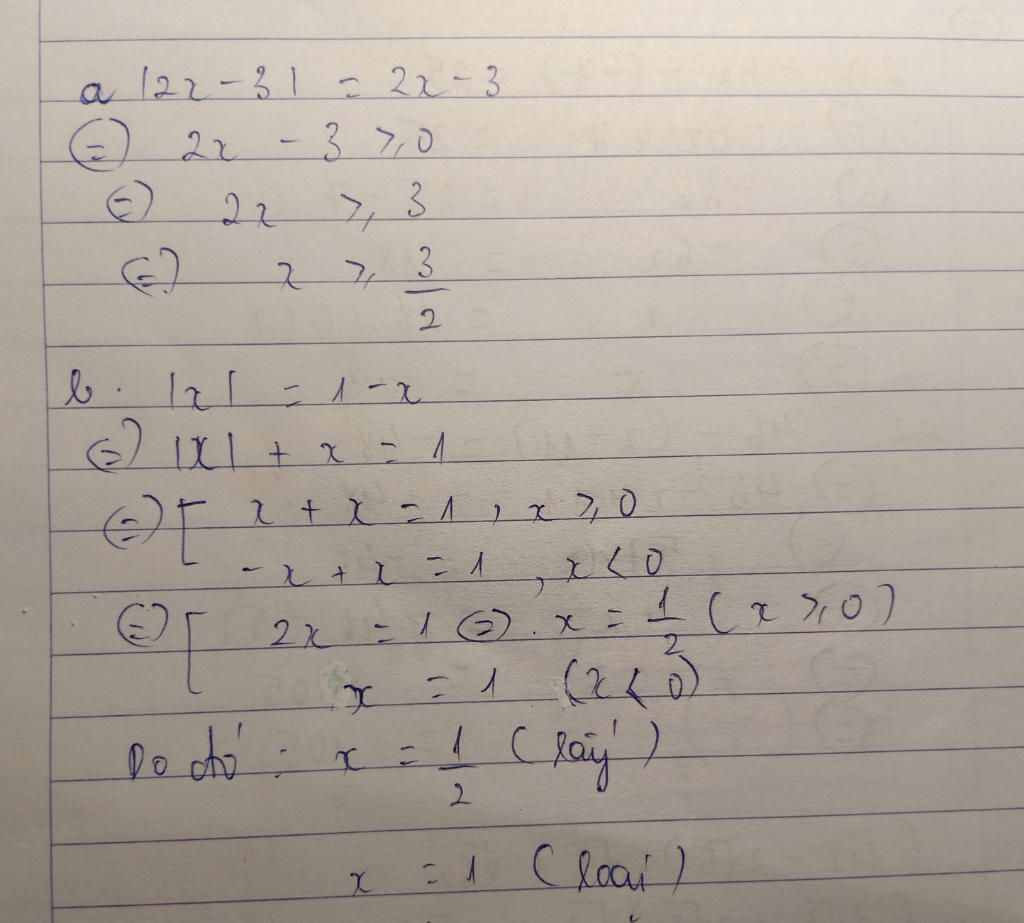 a |2x - 3| = 2x - 3
(=) 2x - 3 ≥ 0
(=) 2x ≥ 3
(=) x ≥ 3/2
b. |x| = 1 - x
(=) |x| + x = 1
(=) [ x + x = 1 , x ≥ 0
- x + x = 1 , x < 0
(=) [ 2x = 1 (=) . x = 1/2 ( x ≥ 0 )
x = 1 (x < 0)
Do đó : x = 1/2 ( lấy )
x = 1 ( loại )